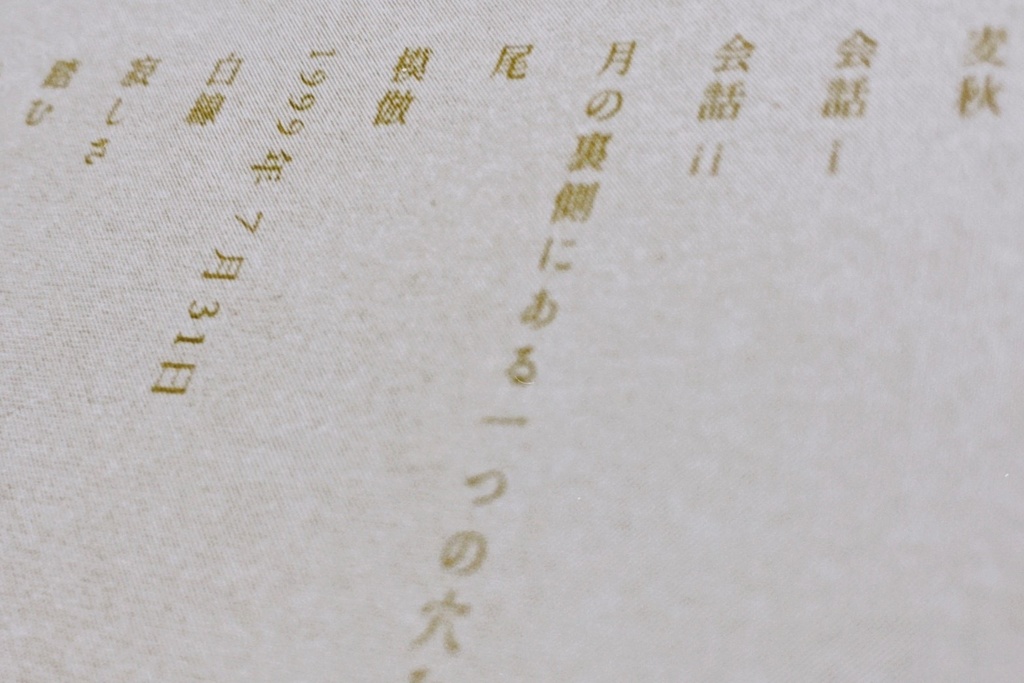 麦秋
会話 i
会話 ii
月の裏側にある一つの穴
尾
模倣
1999年7月31日
白線
寂しさ
踏む